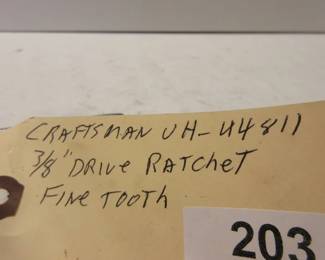 CRAFTSMAN VH-44811
3/8" DRIVE RATCHET
FINE TOOTH
203